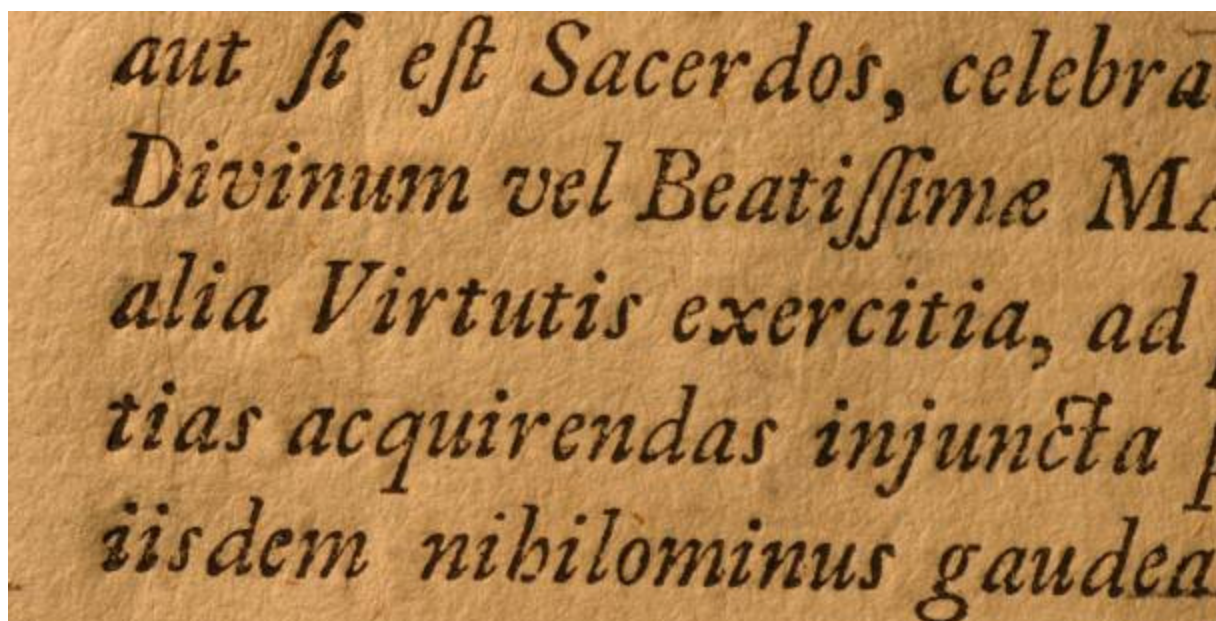 aut ſi eſt Sacerdos, celebra
Divinum vel Beatiſſimæ MA
alia Virtutis exercitia, ad
tias acquirendas injuncta p
iisdem nihilominus gaudea